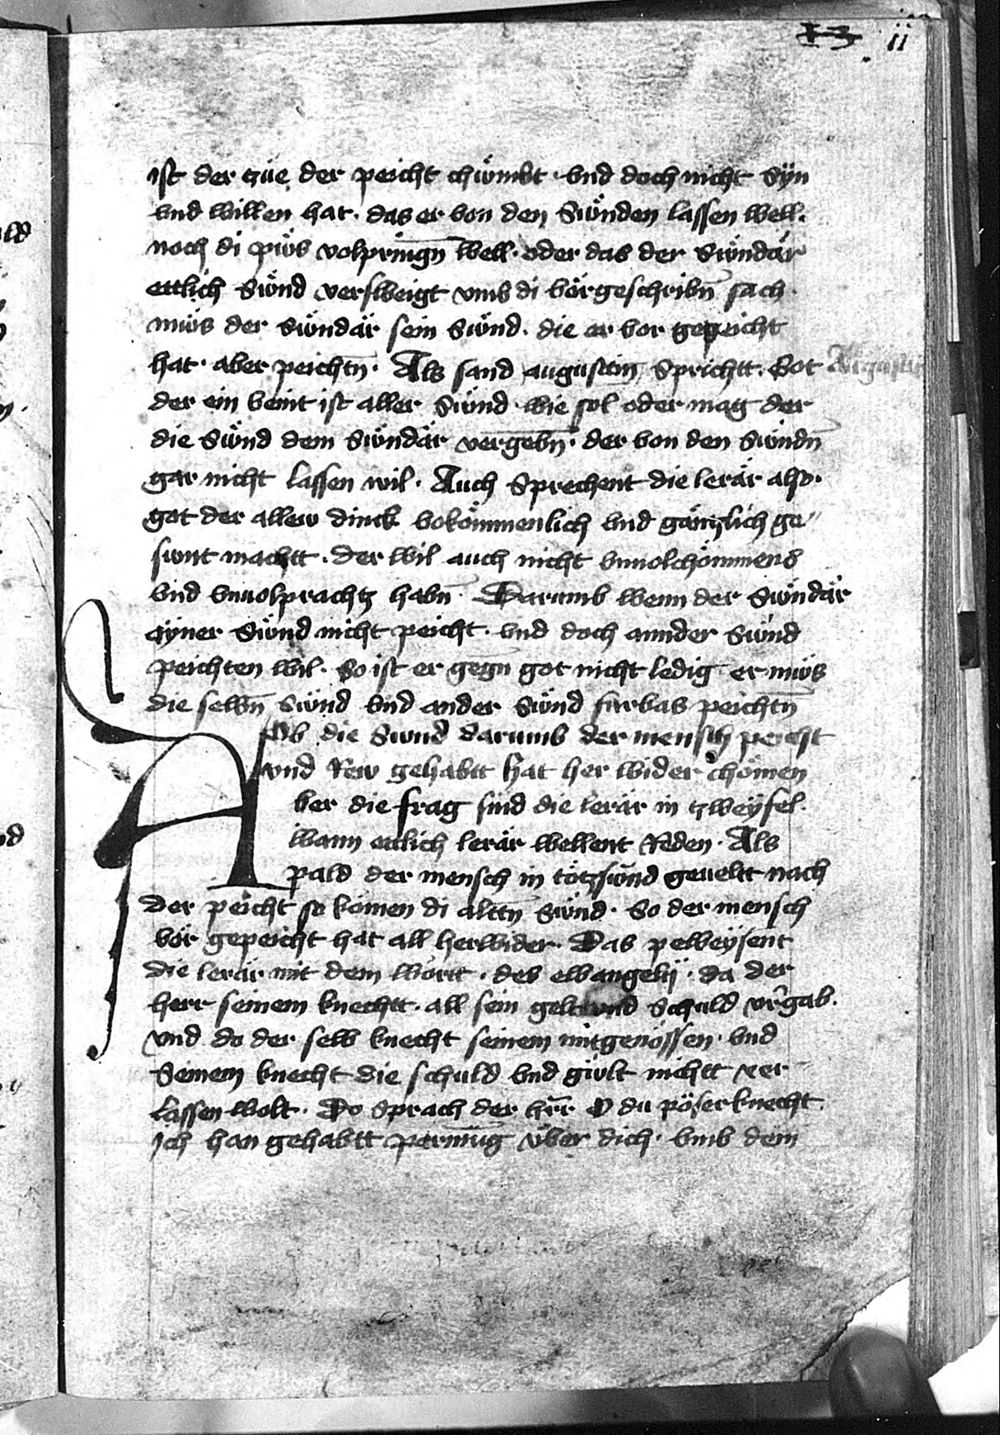 ii
ist der tzüe der peicht chümbt · vnd doch nicht Syn
vnd willen hat · das er von den Sünden lassen well ·
noch di půs volpringn̄ well · oder das der Sündär
ettlich Sünd versweigt vmb di vorgeschribn̄ sach ·
můs der Sündär sein Sünd · die er vor gepeicht
hat · aber peichtn̄ · Als sand augustein Sprichtt · Got
der ein veint ist aller Sünd · wie sol oder mag der
die Sünd dem Sündär vergebn̄ · der von den Sündn̄
gar nicht lassen wil · Auch Sprechent die lerär also ·
got der allew dinck volkömmenlich vnd gäntzlich ge〃
sunt machtt · der wil auch nicht vnuolchömmens
vnd vnuolprachtz habn̄ · Darumb wenn der Sündär
ayner Sünd nicht peicht · vnd doch annder Sünd
peichten wil · So ist er gegn̄ got nicht ledig er můs
die selbn̄ Sünd vnd ander Sünd fürbas peichtn̄
Ob die Sünd darumb der mensch peicht
vnd Rew gehabtt hat her wider chömen
Aber die frag sind die lerär in tzweyfel ·
wann ettlich lerär wellent Reden · Als
pald der mensch in tötzsünd geuelt nach
der peicht so kömen di alttn̄ Sünd · So der mensch
vor gepeicht hat all herwider · Das peweysent
die lerär mit dem wortt · des ewangelij · da der
herr seinem knechtt · all sein gelt vnd Schuld vr̄gab ·
vnd do der selb knecht seinem mitgenossen · vnd
Seinem knecht die schuld vnd gült nichtt ver
lassen wolt · Do Sprach der hr̄r O du pöser knecht ·
ich han gehabtt parmūg über dich · vmb dem